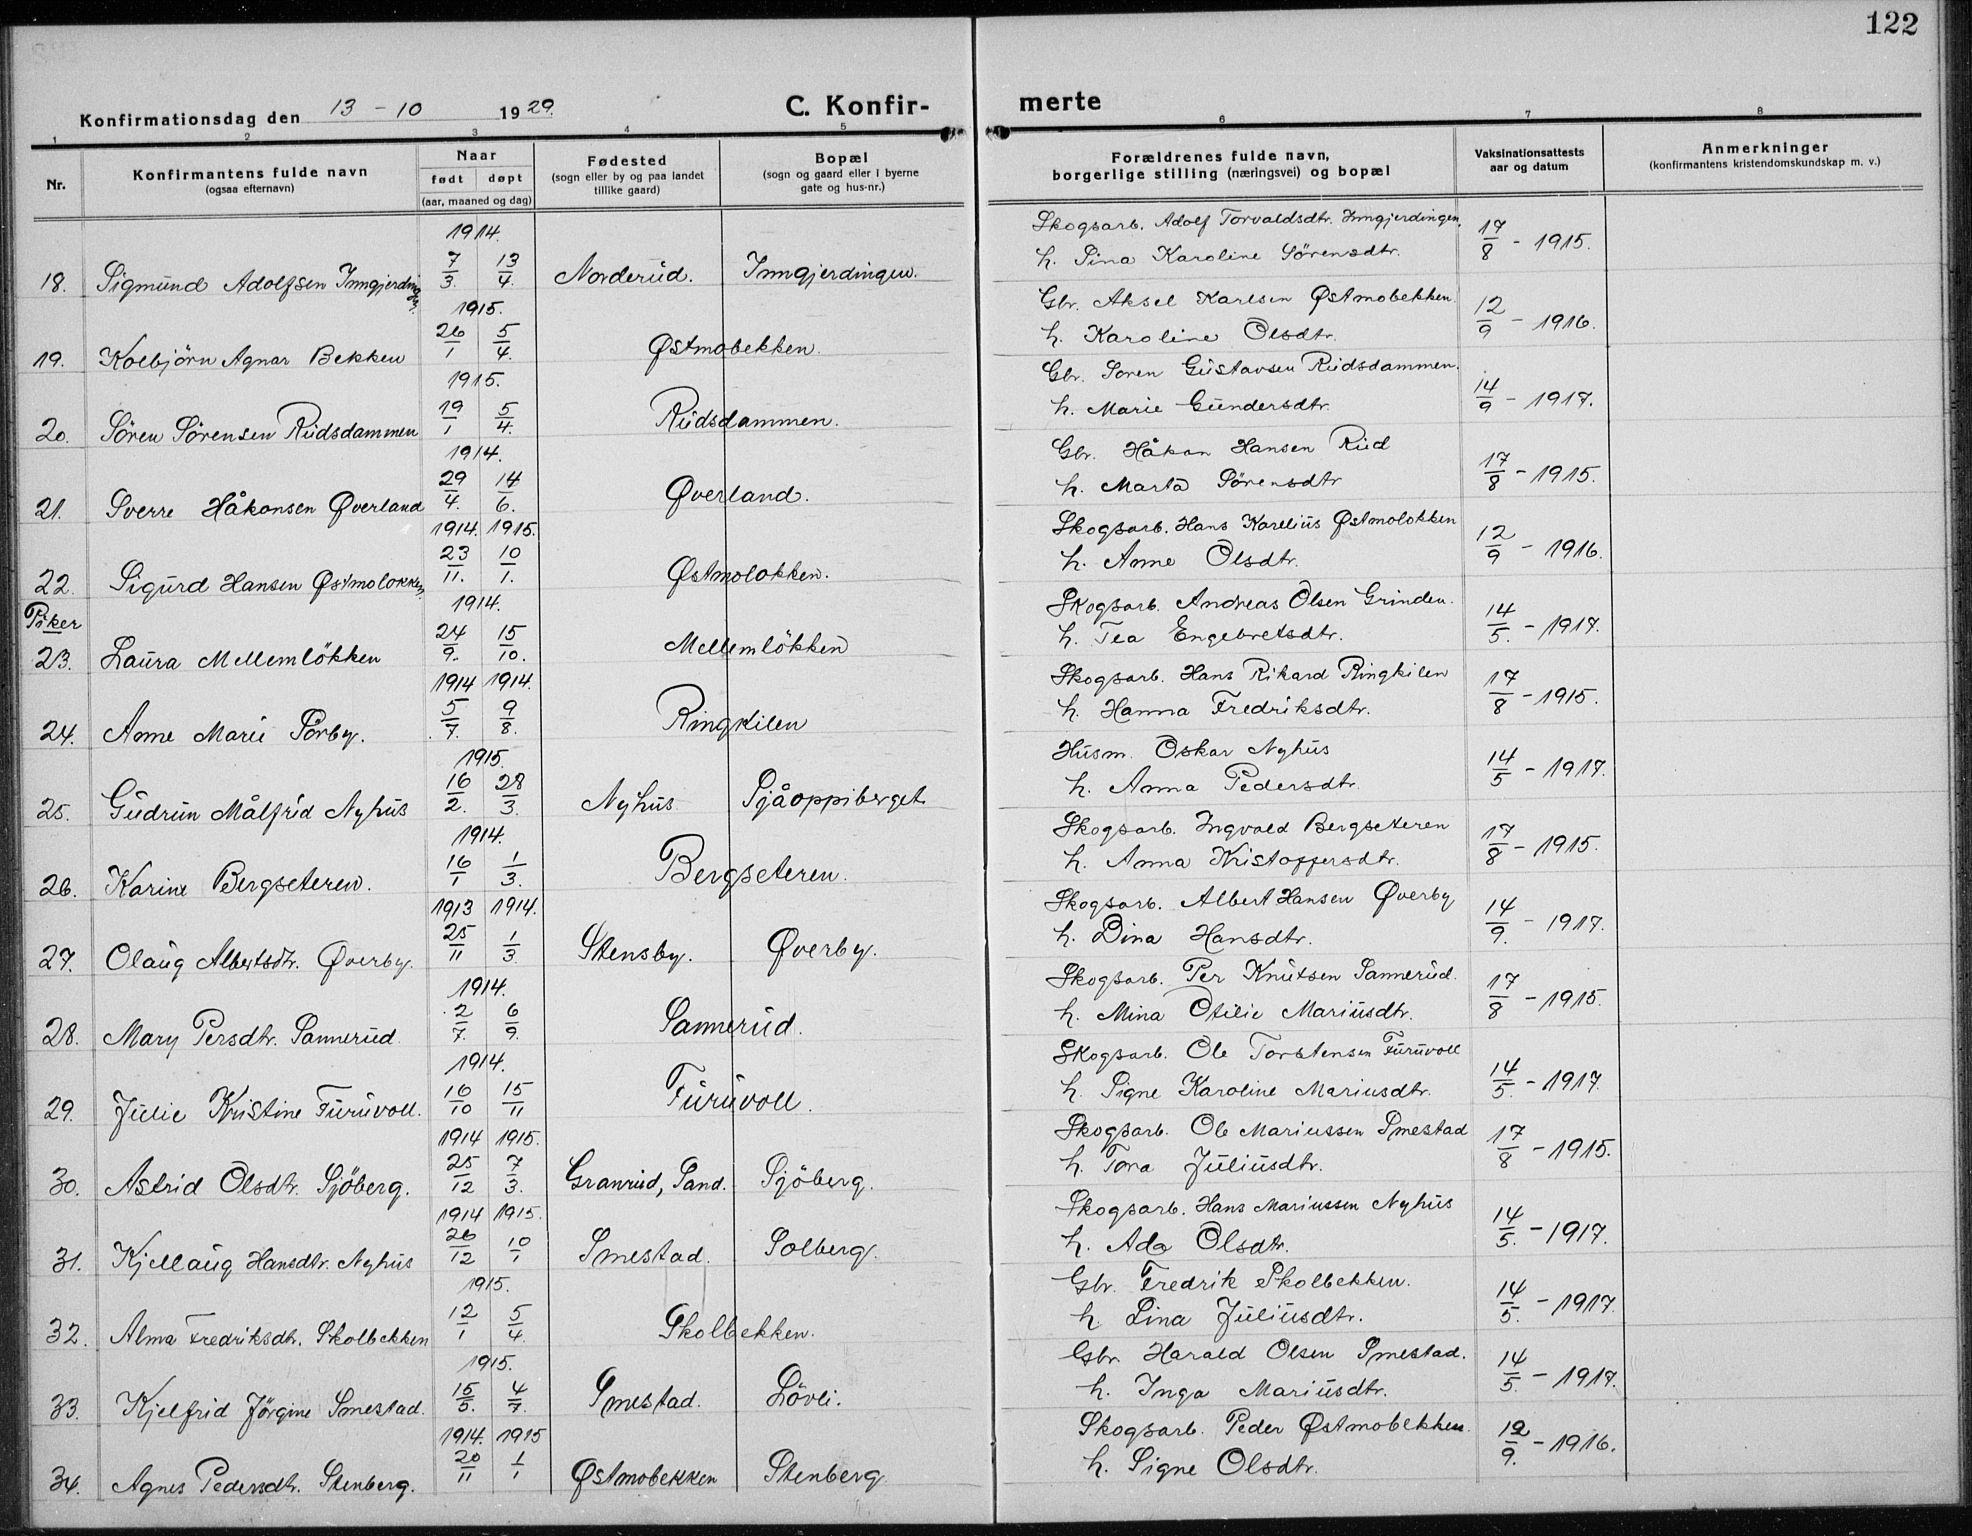 122
Konfirmationsdag den 13 - 10 1929.
C. Konfirmerte
1 2 3 4 5 6 7 8
Nr.
Konfirmantens fulde navn
(ogsaa efternavn)
Naar
født døpt
(aar, maaned og dag)
Fødested
(sogn eller by og paa landet
tillike gaard)
Bopæl
(sogn og gaard eller i byerne
gate og hus-nr.)
Forældrenes fulde navn,
borgerlige stilling (næringsvei) og bopæl
Vaksinationsattests
aar og datum
Anmerkninger
(konfirmantens kristendomskundskap m. v.)
1914.
18. Sigmund Adolfsen Inngjerdingen 7/3. 13/4. Norderud. Inngjerdingen.
Skogsarb. Adolf Torvaldsdtr. Inngjerdingen.
h. Sina Karoline Sörensdtr. 17/8 - 1915.
1915.
19. Kolbjörn Agnar Bekken 26/1 5/4. Østmobekken.
Gbr. Aksel Karlsen Østmobekken.
h. Karoline Olsdtr. 12/9 - 1916.
1915.
20. Sören Sörensen Rudsdammen 19/1 5/4. Rudsdammen.
Gbr. Soren Gustavsen Rudsdammen.
h. Marie Gundersdtr. 14/9 - 1917.
1914.
21. Sverre Håkonsen Øverland 29/4. 14/6. Øverland.
Gbr. Håkon Hansen Rud
h. Marta Sörensdtr 17/8 - 1915.
1914. 1915.
22. Sigurd Hansen Østmolokken 23/11. 10/1. Østmolokken.
Skogsarb. Hans Karelius Østmolokken
h. Anne Olsdtr. 12/9 - 1916.
Piker
1914.
23. Laura Mellemlökken 24/9. 15/10. Mellemlökken
Skogsarb. Andreas Olsen Grinden.
h. Tea Engebretsdtr. 14/5. - 1917.
1914 1914.
24. Anne Marie Sörby. 5/7. 9/8. Ringkilen
Skogsarb. Hans Rikard Ringkilen
h. Hanna Fredriksdtr. 17/8 - 1915.
1915.
25. Gudrun Målfrid Nyhus 16/2. 28/3. Nyhus Sjåoppiberget
Husm. Oskar Nyhus
h. Anna Pedersdtr. 14/5 - 1917.
1914.
26. Karine Bergseteren. 16/1 1/3. Bergseteren.
Skogsarb. Ingvald Bergseteren
h. Anna Kristoffersdtr. 17/8 - 1915.
1913 1914.
27. Olaug Albertsdtr. Øverby. 25/11 1/3. Stensby. Øverby.
Skogsarb. Albert Hansen Øverby
h. Dina Hansdtr. 14/9. - 1917.
1914.
28. Mary Persdtr. Sannerud. 2/7. 6/9. Sannerud.
Skogsarb. Per Knutsen Sannerud.
h. Mina Otilie Mariusdtr. 17/8 - 1915.
1914.
29. Julie Kristine Furuvoll. 16/10 15/11 Furuvoll.
Skogsarb. Ole Torstensen Furuvoll
h. Signe Karoline Mariusdtr. 14/5. - 1917.
1914 1915.
30. Astrid Olsdtr. Sjöberg. 25/12 7/3. Granrud, Sand. Sjöberg.
Skogsarb. Ole Mariussen Smestad
h. Tora Juliusdtr. 17/8 - 1915.
1914 1915.
31. Kjellaug Hansdtr. Nyhus 26/12 10/1 Smestad. Solberg.
Skogsarb. Hans Mariussen Nyhus
h. Ada Olsdtr. 14/5. - 1917.
1915.
32. Alma Fredriksdtr. Skolbekken 12/1 5/4. Skolbekken.
Gbr. Fredrik Skolbekken.
h. Lina Juliusdtr. 14/5. - 1917.
1915.
33. Kjelfrid Jörgine Smestad. 15/5. 4/7. Smestad. Lövli.
Gbr. Harald Olsen Smestad.
h. Inga Mariusdtr. 14/5. - 1917.
1914. 1915
34. Agnes Pedersdtr. Stenberg. 20/11 1/1 Østmobekken Stenberg
Skogsarb. Peder Østmobekken
h. Signe Olsdtr. 12/9. - 1916.